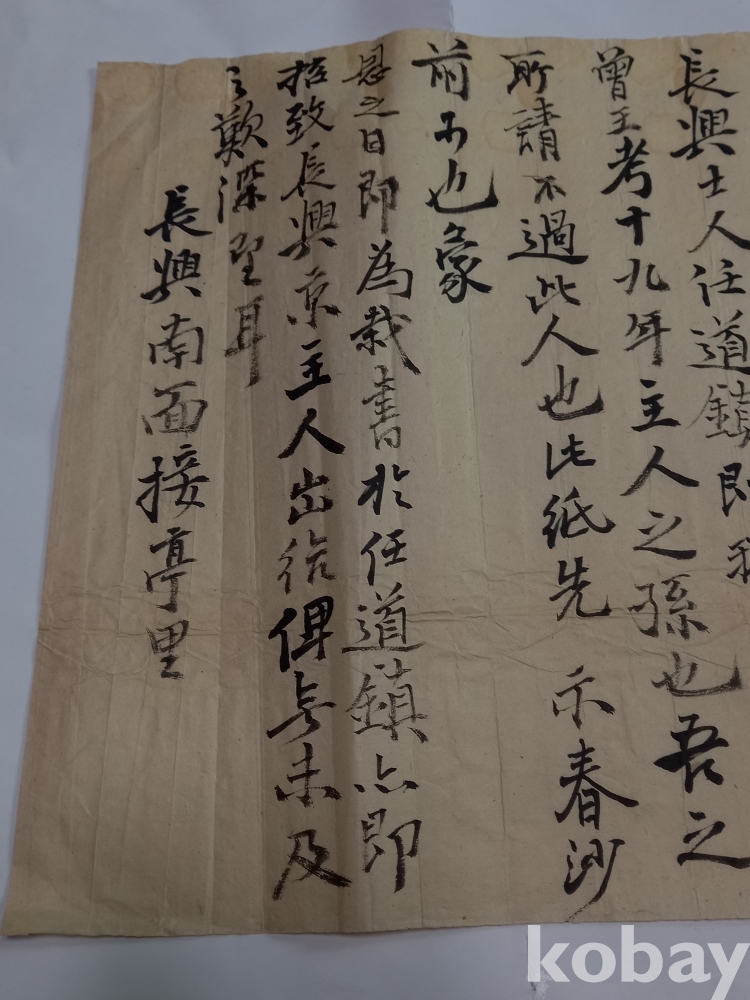 長興士人任道鎮即我
曾王考十九年主人之孫也吾之
所請不過此人也此紙先 示春沙
前可也蒙
恩之日即為裁書於任道鎮亦即
招致長興京主人出給俾無未及
之歎深望耳
長興南面接亭里
kobay